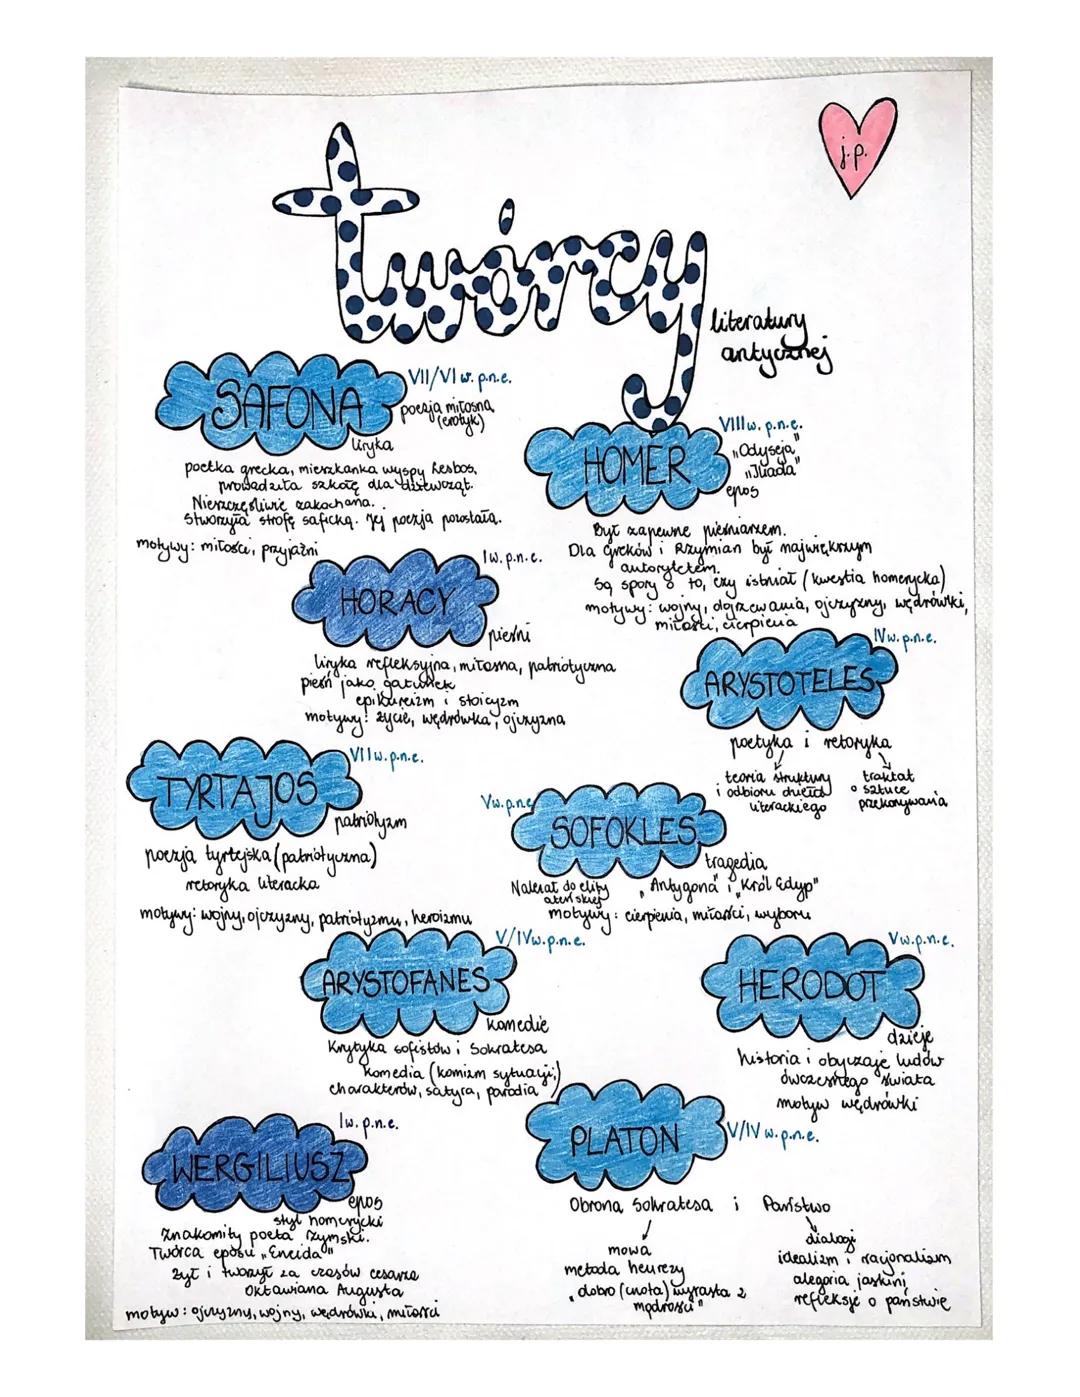 j.p.
twórcy
literatury
antycznej
SAFONA
VII/VI w. p.n.e.
poezja miłosna
(erotyk)
liryka
poetka grecka, mieszkanka wyspy Lesbos,
prowadziła szkołę dla dziewcząt.
Nieszczęśliwie zakochana.
Stworzyła strofę saficką. Jej poezja powstała.
motywy: miłości, przyjaźni
HOMER
VIII w. p.n.e.
"Odyseja"
"Iliada"
epos
Był zapewne pieśniarzem.
Dla Greków i Rzymian był największym
autorytetem.
Są spory o to, czy istniał (kwestia homerycka)
motywy: wojny, dojrzewania, ojczyzny, wędrówki,
miłości, cierpienia
HORACY
I w. p.n.e.
pieśni
liryka refleksyjna, miłosna, patriotyczna
pieśń jako gatunek
epikureizm i stoicyzm
motywy: życie, wędrówka, ojczyzna
ARYSTOTELES
IV w. p.n.e.
poetyka i retoryka
teoria struktury
i odbioru dzieła
literackiego
traktat
o sztuce
przekonywania
TYRTAJOS
VII w. p.n.e.
patriotyzm
poezja tyrtejska (patriotyczna)
retoryka literacka
motywy: wojny, ojczyzny, patriotyzmu, heroizmu
SOFOKLES
V w. p.n.e.
tragedia
Należał do elity
ateńskiej
"Antygona" i "Król Edyp"
motywy: cierpienia, miłości, wyboru
ARYSTOFANES
V/IV w. p.n.e.
komedie
Krytyka sofistów i Sokratesa
komedia (komizm sytuacji,)
charakterów, satyra, parodia
HERODOT
V w. p.n.e.
dzieje
historia i obyczaje ludów
ówczesnego świata
motyw wędrówki
WERGILIUSZ
I w. p.n.e.
epos
styl homerycki
Znakomity poeta rzymski.
Twórca eposu "Eneida"
Żył i tworzył za czasów cesarza
Oktawiana Augusta
motyw: ojczyzny, wojny, wędrówki, miłości
PLATON
V/IV w. p.n.e.
Obrona Sokratesa i Państwo
mowa
metoda heurezy
"dobro (cnota) wyrasta z
mądrości"
dialogi
idealizm i racjonalizm
alegoria jaskini
refleksje o państwie